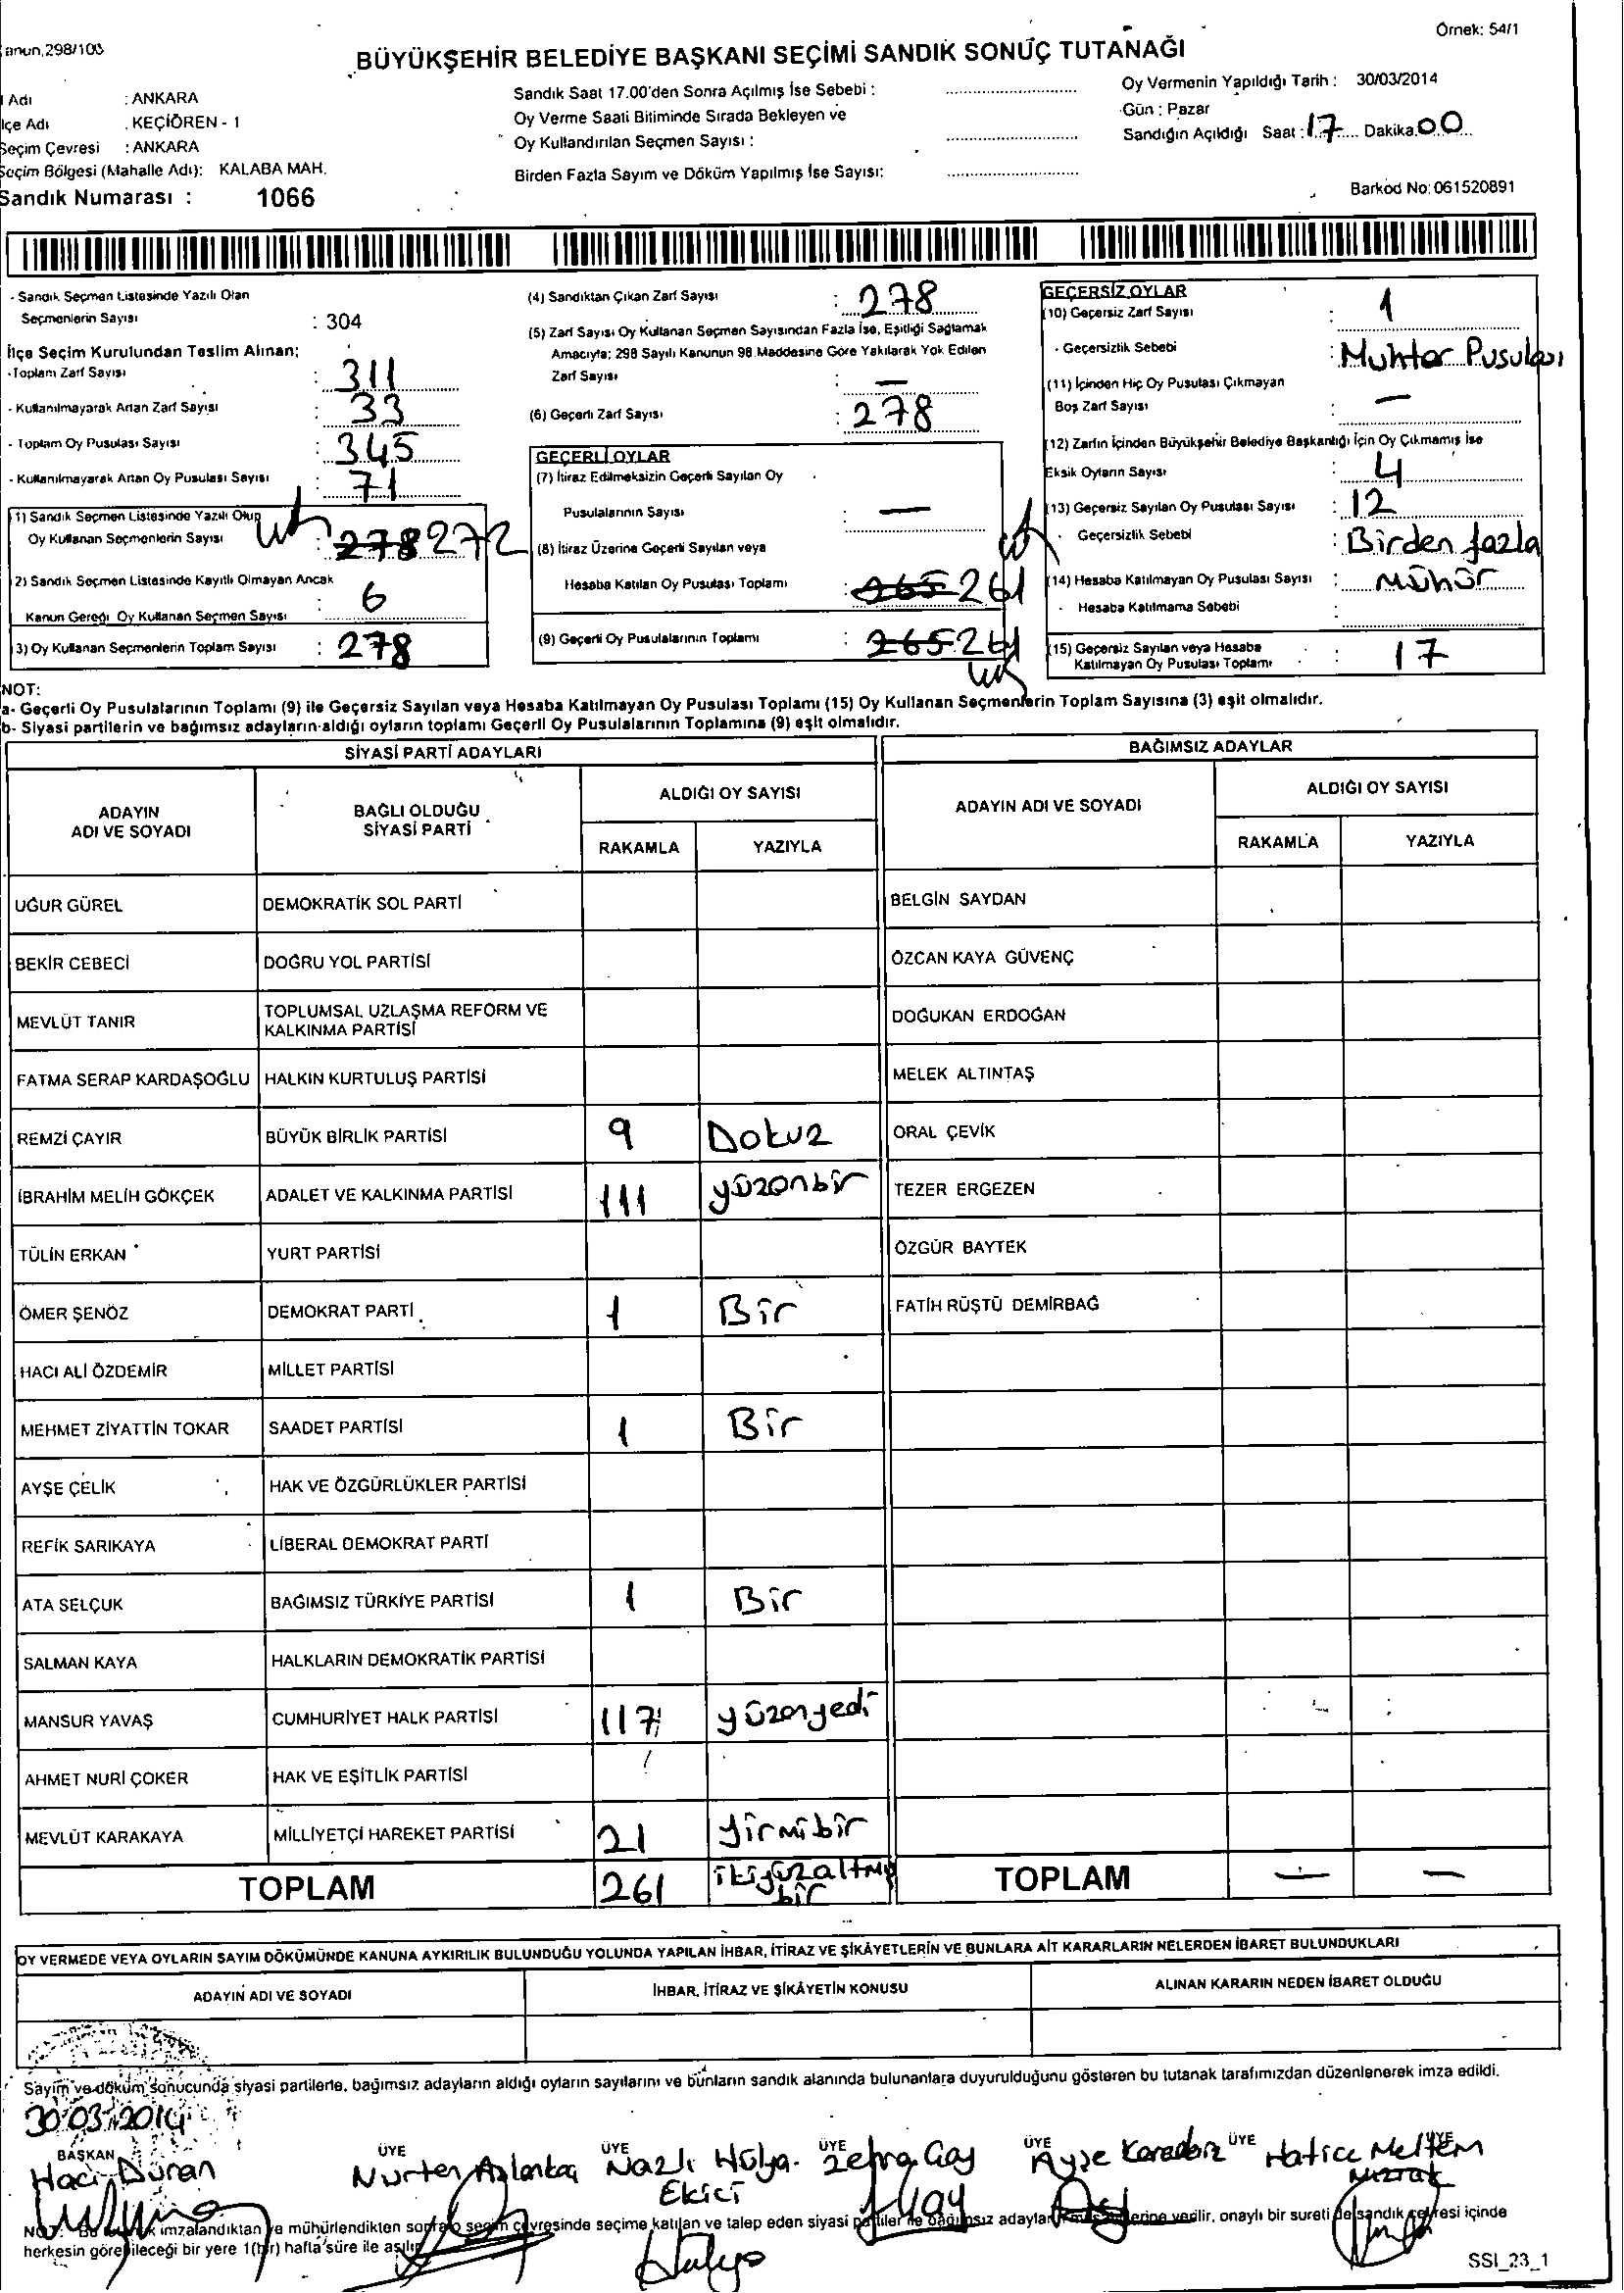 Örnek: 54/1
anun,298/103
BÜYÜKŞEHİR BELEDİYE BAŞKANI SEÇİMİ SANDIK SONUÇ TUTANAĞI
Adı : ANKARA
lçe Adı : KEÇİÖREN - 1
Seçim Çevresi : ANKARA
Seçim Bölgesi (Mahalle Adı): KALABA MAH.
Sandık Numarası : 1066
Sandık Saat 17.00'den Sonra Açılmış İse Sebebi :
Oy Verme Saati Bitiminde Sırada Bekleyen ve
Oy Kullandırılan Seçmen Sayısı :
Birden Fazla Sayım ve Döküm Yapılmış İse Sayısı:
Oy Vermenin Yapıldığı Tarih : 30/03/2014
Gün : Pazar
Sandığın Açıldığı Saat : 17 Dakika 00
Barkod No: 061520891
- Sandık Seçmen Listesinde Yazılı Olan
Seçmenlerin Sayısı : 304
İlçe Seçim Kurulundan Teslim Alınan;
-Toplam Zarf Sayısı : 311
- Kullanılmayarak Artan Zarf Sayısı : 33
- Toplam Oy Pusulası Sayısı : 345
- Kullanılmayarak Artan Oy Pusulası Sayısı : 71
1) Sandık Seçmen Listesinde Yazılı Olup
Oy Kullanan Seçmenlerin Sayısı : 278 272
2) Sandık Seçmen Listesinde Kayıtlı Olmayan Ancak
Kanun Gereği Oy Kullanan Seçmen Sayısı : 6
3) Oy Kullanan Seçmenlerin Toplam Sayısı : 278
(4) Sandıktan Çıkan Zarf Sayısı : 278
(5) Zarf Sayısı Oy Kullanan Seçmen Sayısından Fazla İse, Eşitliği Sağlamak
Amacıyla; 298 Sayılı Kanunun 98.Maddesine Göre Yakılarak Yok Edilen
Zarf Sayısı : —
(6) Geçerli Zarf Sayısı : 278
GEÇERLİ OYLAR
(7) İtiraz Edilmeksizin Geçerli Sayılan Oy
Pusulalarının Sayısı : —
(8) İtiraz Üzerine Geçerli Sayılan veya
Hesaba Katılan Oy Pusulası Toplamı : 265 261
(9) Geçerli Oy Pusulalarının Toplamı : 265 261
GEÇERSİZ OYLAR
(10) Geçersiz Zarf Sayısı : 1
- Geçersizlik Sebebi : Muhtar Pusulası
(11) İçinden Hiç Oy Pusulası Çıkmayan
Boş Zarf Sayısı : —
(12) Zarfın İçinden Büyükşehir Belediye Başkanlığı İçin Oy Çıkmamış İse
Eksik Oyların Sayısı : 4
(13) Geçersiz Sayılan Oy Pusulası Sayısı : 12
- Geçersizlik Sebebi : Birden fazla
(14) Hesaba Katılmayan Oy Pusulası Sayısı : Mühür
- Hesaba Katılmama Sebebi :
(15) Geçersiz Sayılan veya Hesaba
Katılmayan Oy Pusulası Toplamı : 17
NOT:
a- Geçerli Oy Pusulalarının Toplamı (9) ile Geçersiz Sayılan veya Hesaba Katılmayan Oy Pusulası Toplamı (15) Oy Kullanan Seçmenlerin Toplam Sayısına (3) eşit olmalıdır.
b- Siyasi partilerin ve bağımsız adayların aldığı oyların toplamı Geçerli Oy Pusulalarının Toplamına (9) eşit olmalıdır.
SİYASİ PARTİ ADAYLARI BAĞIMSIZ ADAYLAR
ADAYIN
ADI VE SOYADI
BAĞLI OLDUĞU
SİYASİ PARTİ
ALDIĞI OY SAYISI
RAKAMLA YAZIYLA
ADAYIN ADI VE SOYADI
ALDIĞI OY SAYISI
RAKAMLA YAZIYLA
UĞUR GÜREL DEMOKRATİK SOL PARTİ BELGİN SAYDAN
BEKİR CEBECİ DOĞRU YOL PARTİSİ ÖZCAN KAYA GÜVENÇ
MEVLÜT TANIR TOPLUMSAL UZLAŞMA REFORM VE
KALKINMA PARTİSİ DOĞUKAN ERDOĞAN
FATMA SERAP KARDAŞOĞLU HALKIN KURTULUŞ PARTİSİ MELEK ALTINTAŞ
REMZİ ÇAYIR BÜYÜK BİRLİK PARTİSİ 9 Dokuz ORAL ÇEVİK
İBRAHİM MELİH GÖKÇEK ADALET VE KALKINMA PARTİSİ 111 yüzonbir TEZER ERGEZEN
TÜLİN ERKAN YURT PARTİSİ ÖZGÜR BAYTEK
ÖMER ŞENÖZ DEMOKRAT PARTİ 1 Bir FATİH RÜŞTÜ DEMİRBAĞ
HACI ALİ ÖZDEMİR MİLLET PARTİSİ
MEHMET ZİYATTİN TOKAR SAADET PARTİSİ 1 Bir
AYŞE ÇELİK HAK VE ÖZGÜRLÜKLER PARTİSİ
REFİK SARIKAYA LİBERAL DEMOKRAT PARTİ
ATA SELÇUK BAĞIMSIZ TÜRKİYE PARTİSİ 1 Bir
SALMAN KAYA HALKLARIN DEMOKRATİK PARTİSİ
MANSUR YAVAŞ CUMHURİYET HALK PARTİSİ 117 yüzonyedi
AHMET NURİ ÇOKER HAK VE EŞİTLİK PARTİSİ
MEVLÜT KARAKAYA MİLLİYETÇİ HAREKET PARTİSİ 21 yirmibir
TOPLAM 261 ikiyüzaltmış
bir TOPLAM — —
OY VERMEDE VEYA OYLARIN SAYIM DÖKÜMÜNDE KANUNA AYKIRILIK BULUNDUĞU YOLUNDA YAPILAN İHBAR, İTİRAZ VE ŞİKÂYETLERİN VE BUNLARA AİT KARARLARIN NELERDEN İBARET BULUNDUKLARI
ADAYIN ADI VE SOYADI İHBAR, İTİRAZ VE ŞİKÂYETİN KONUSU ALINAN KARARIN NEDEN İBARET OLDUĞU
Sayım ve döküm sonucunda siyasi partilerle, bağımsız adayların aldığı oyların sayılarını ve bunların sandık alanında bulunanlara duyurulduğunu gösteren bu tutanak tarafımızdan düzenlenerek imza edildi.
30.03.2014
BAŞKAN ÜYE ÜYE ÜYE ÜYE ÜYE ÜYE
Hacı Duran Nurten Nazlı Hülya Zehra Ayşe Hatice Meltem
Ekici Mızrak
NOT: Bu imzalandıktan ve mühürlendikten sonra seçim çevresinde seçime katılan ve talep eden siyasi partiler ile bağımsız adaylar verilir, onaylı bir sureti de sandık çevresi içinde
herkesin görebileceği bir yere 1(bir) hafta süre ile asılır.
Hülya
SSI_23_1